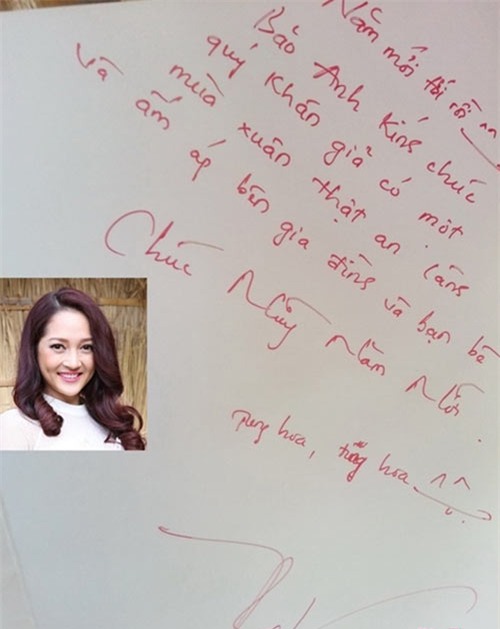 Năm mới tới rồi ^^
Bảo Anh kính chúc
quý khán giả có một
mùa xuân thật an lành
và ấm áp bên gia đình và bạn bè
Chúc Mừng Năm Mới.
Tung hoa, tung hoa ^^